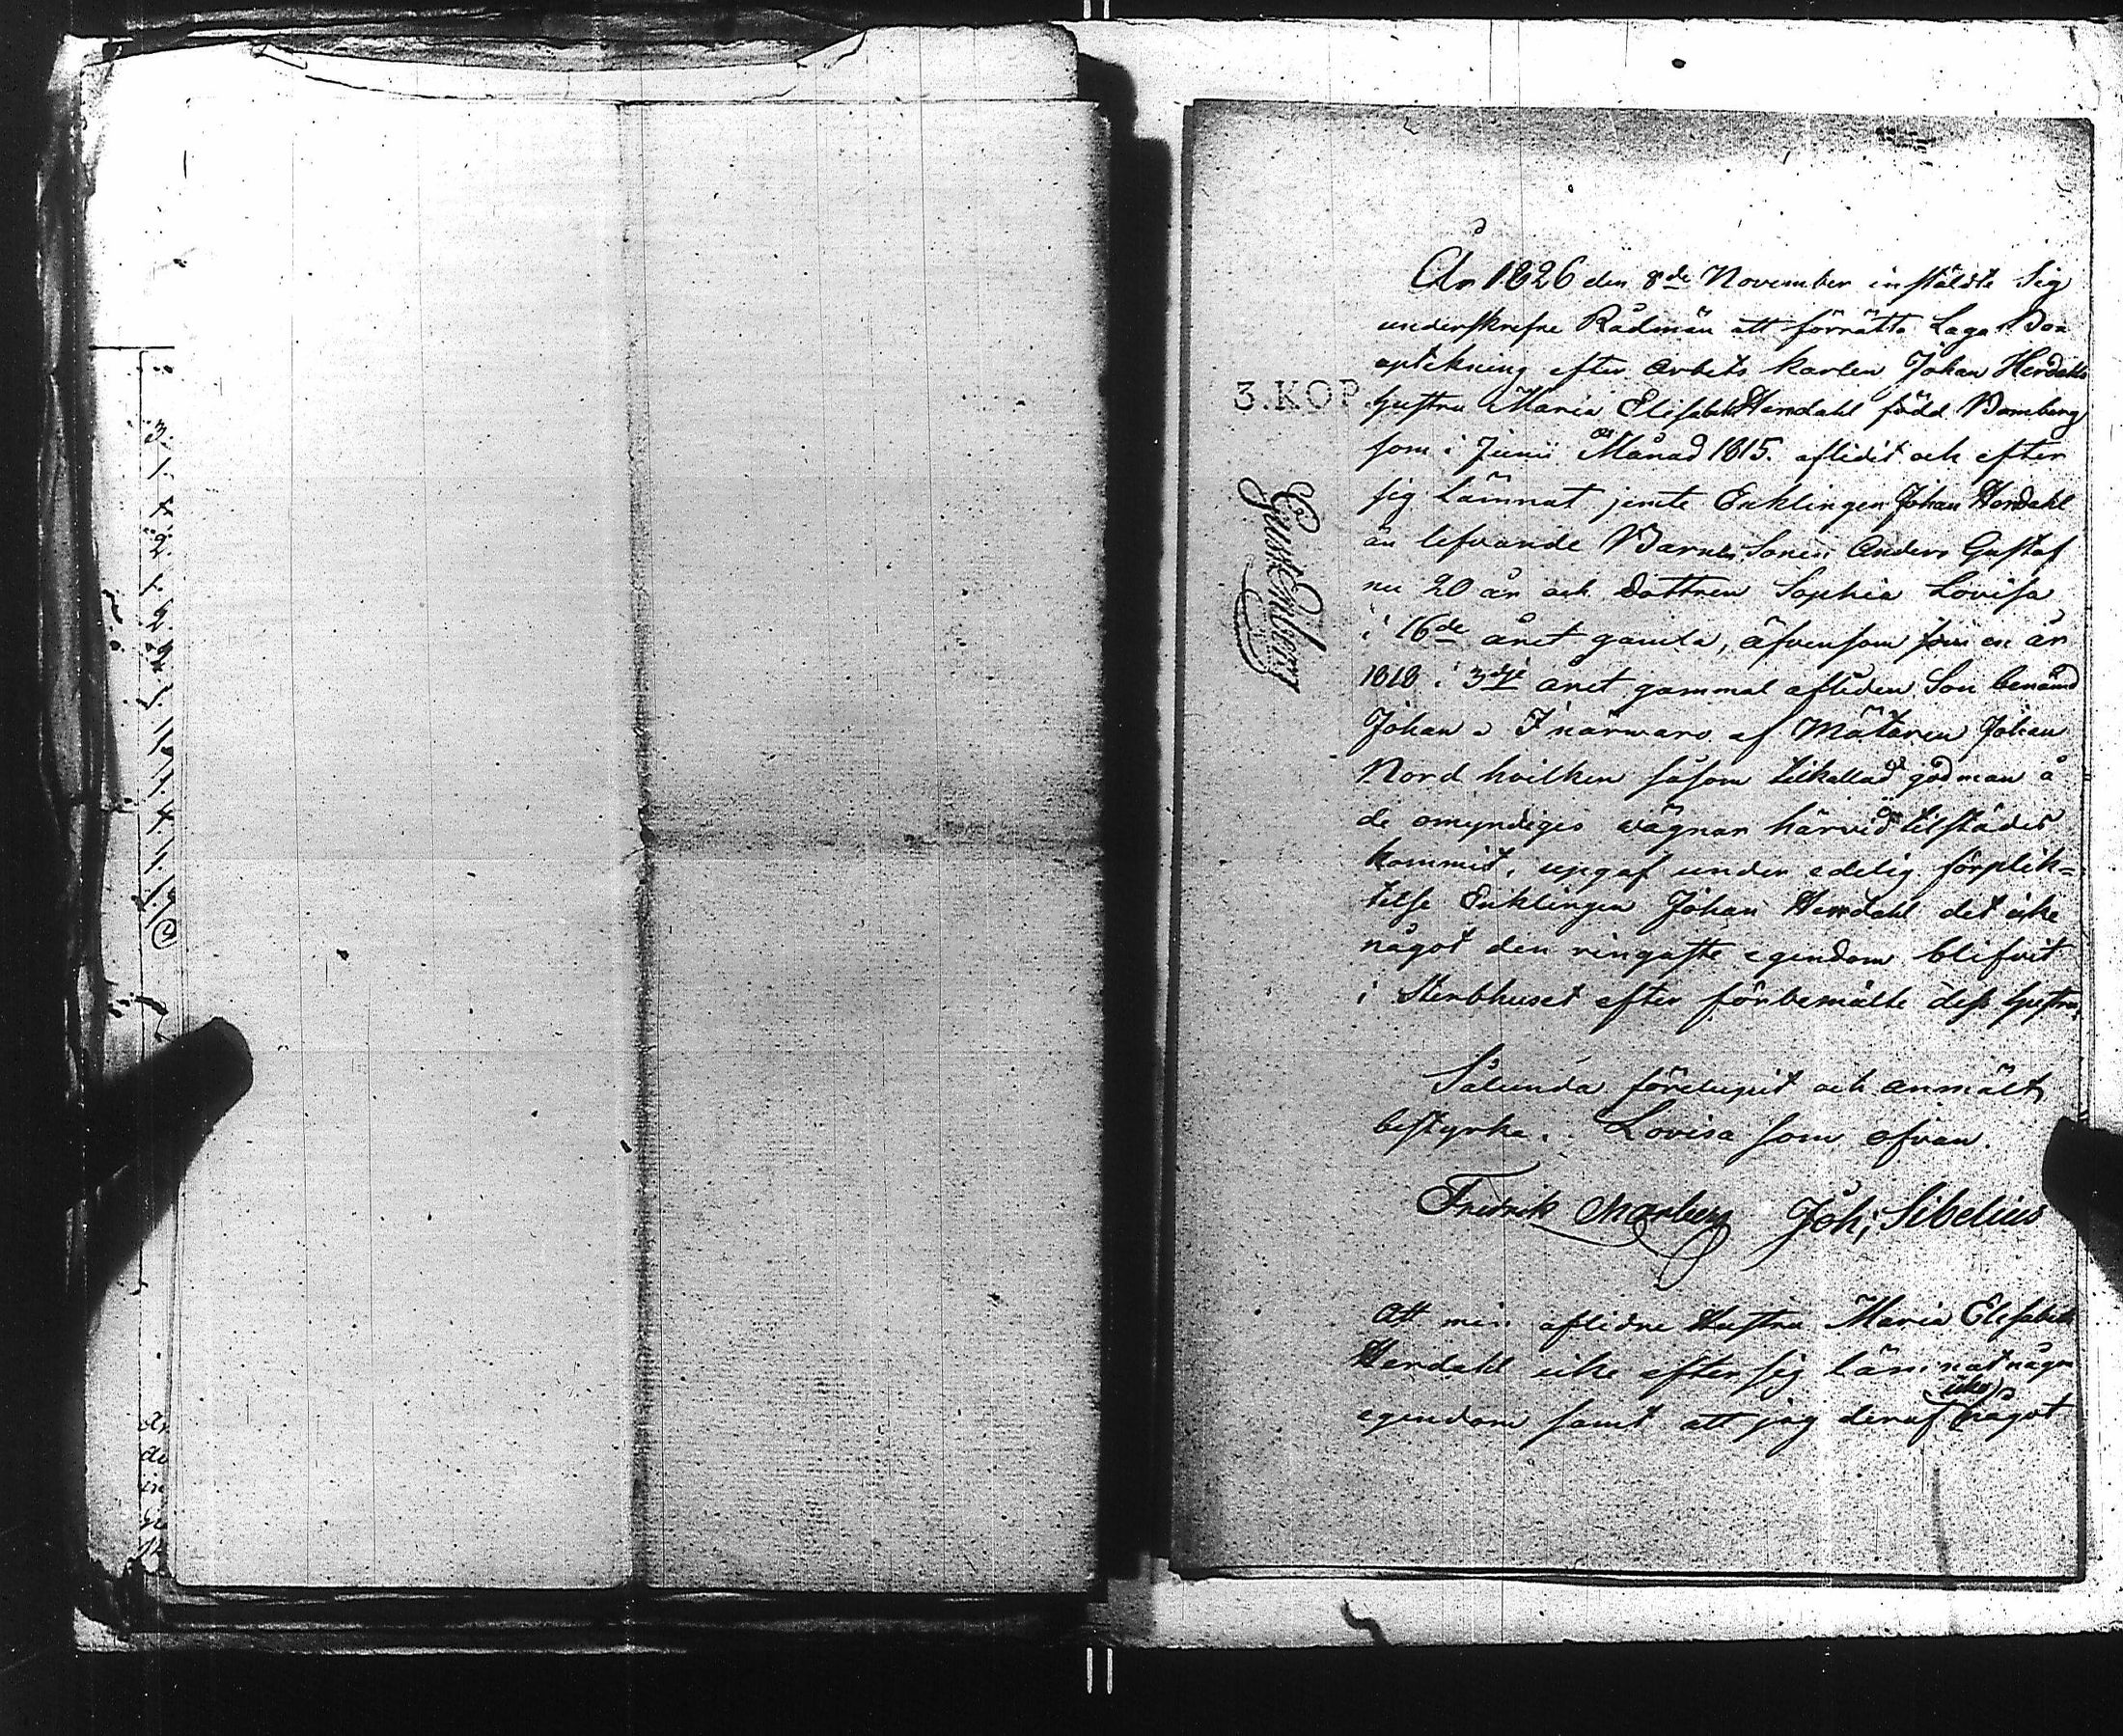 År 1826 den 8de November instäldte Sig
underskrefne Rådmän att förrätta Laga Bou
uptekning efter arbets karlen Johan Herdahls
3.KOP.
hustru Maria Elisabeth Herdahl född Bomberg
som i Junii Månad 1815. aflidit och efter
sig lämnat jemte Enklingen Johan Herdahl
än lefvande Barnen Sonen Anders Gustaf
nu 20 år och Dottren Sophia Lovisa
i 16de året gamla, äfvensom en år
1818 i 3dje året gammal afliden Son benämd
Johan. I närwaro af Mätaren Johan
Nord hvilken såsom tilkallad godman å
de omyndiges wägnar härvid tilstädes
kommit, upgaf under edelig förplik=
telse Enklingen Johan Herdahl det icke
något den ringaste egendom blifvit
i Sterbhuset efter förbemälte dess hustru.
Sålunda förelupit och anmält,
bestyrka. Lovisa som ofvan.
Fredrik Joh; Sibelius
Att min aflidne Hustru Maria Elisabeth
Herdahl icke efter sig lämnat någon
egendom samt att jag deraf icke något